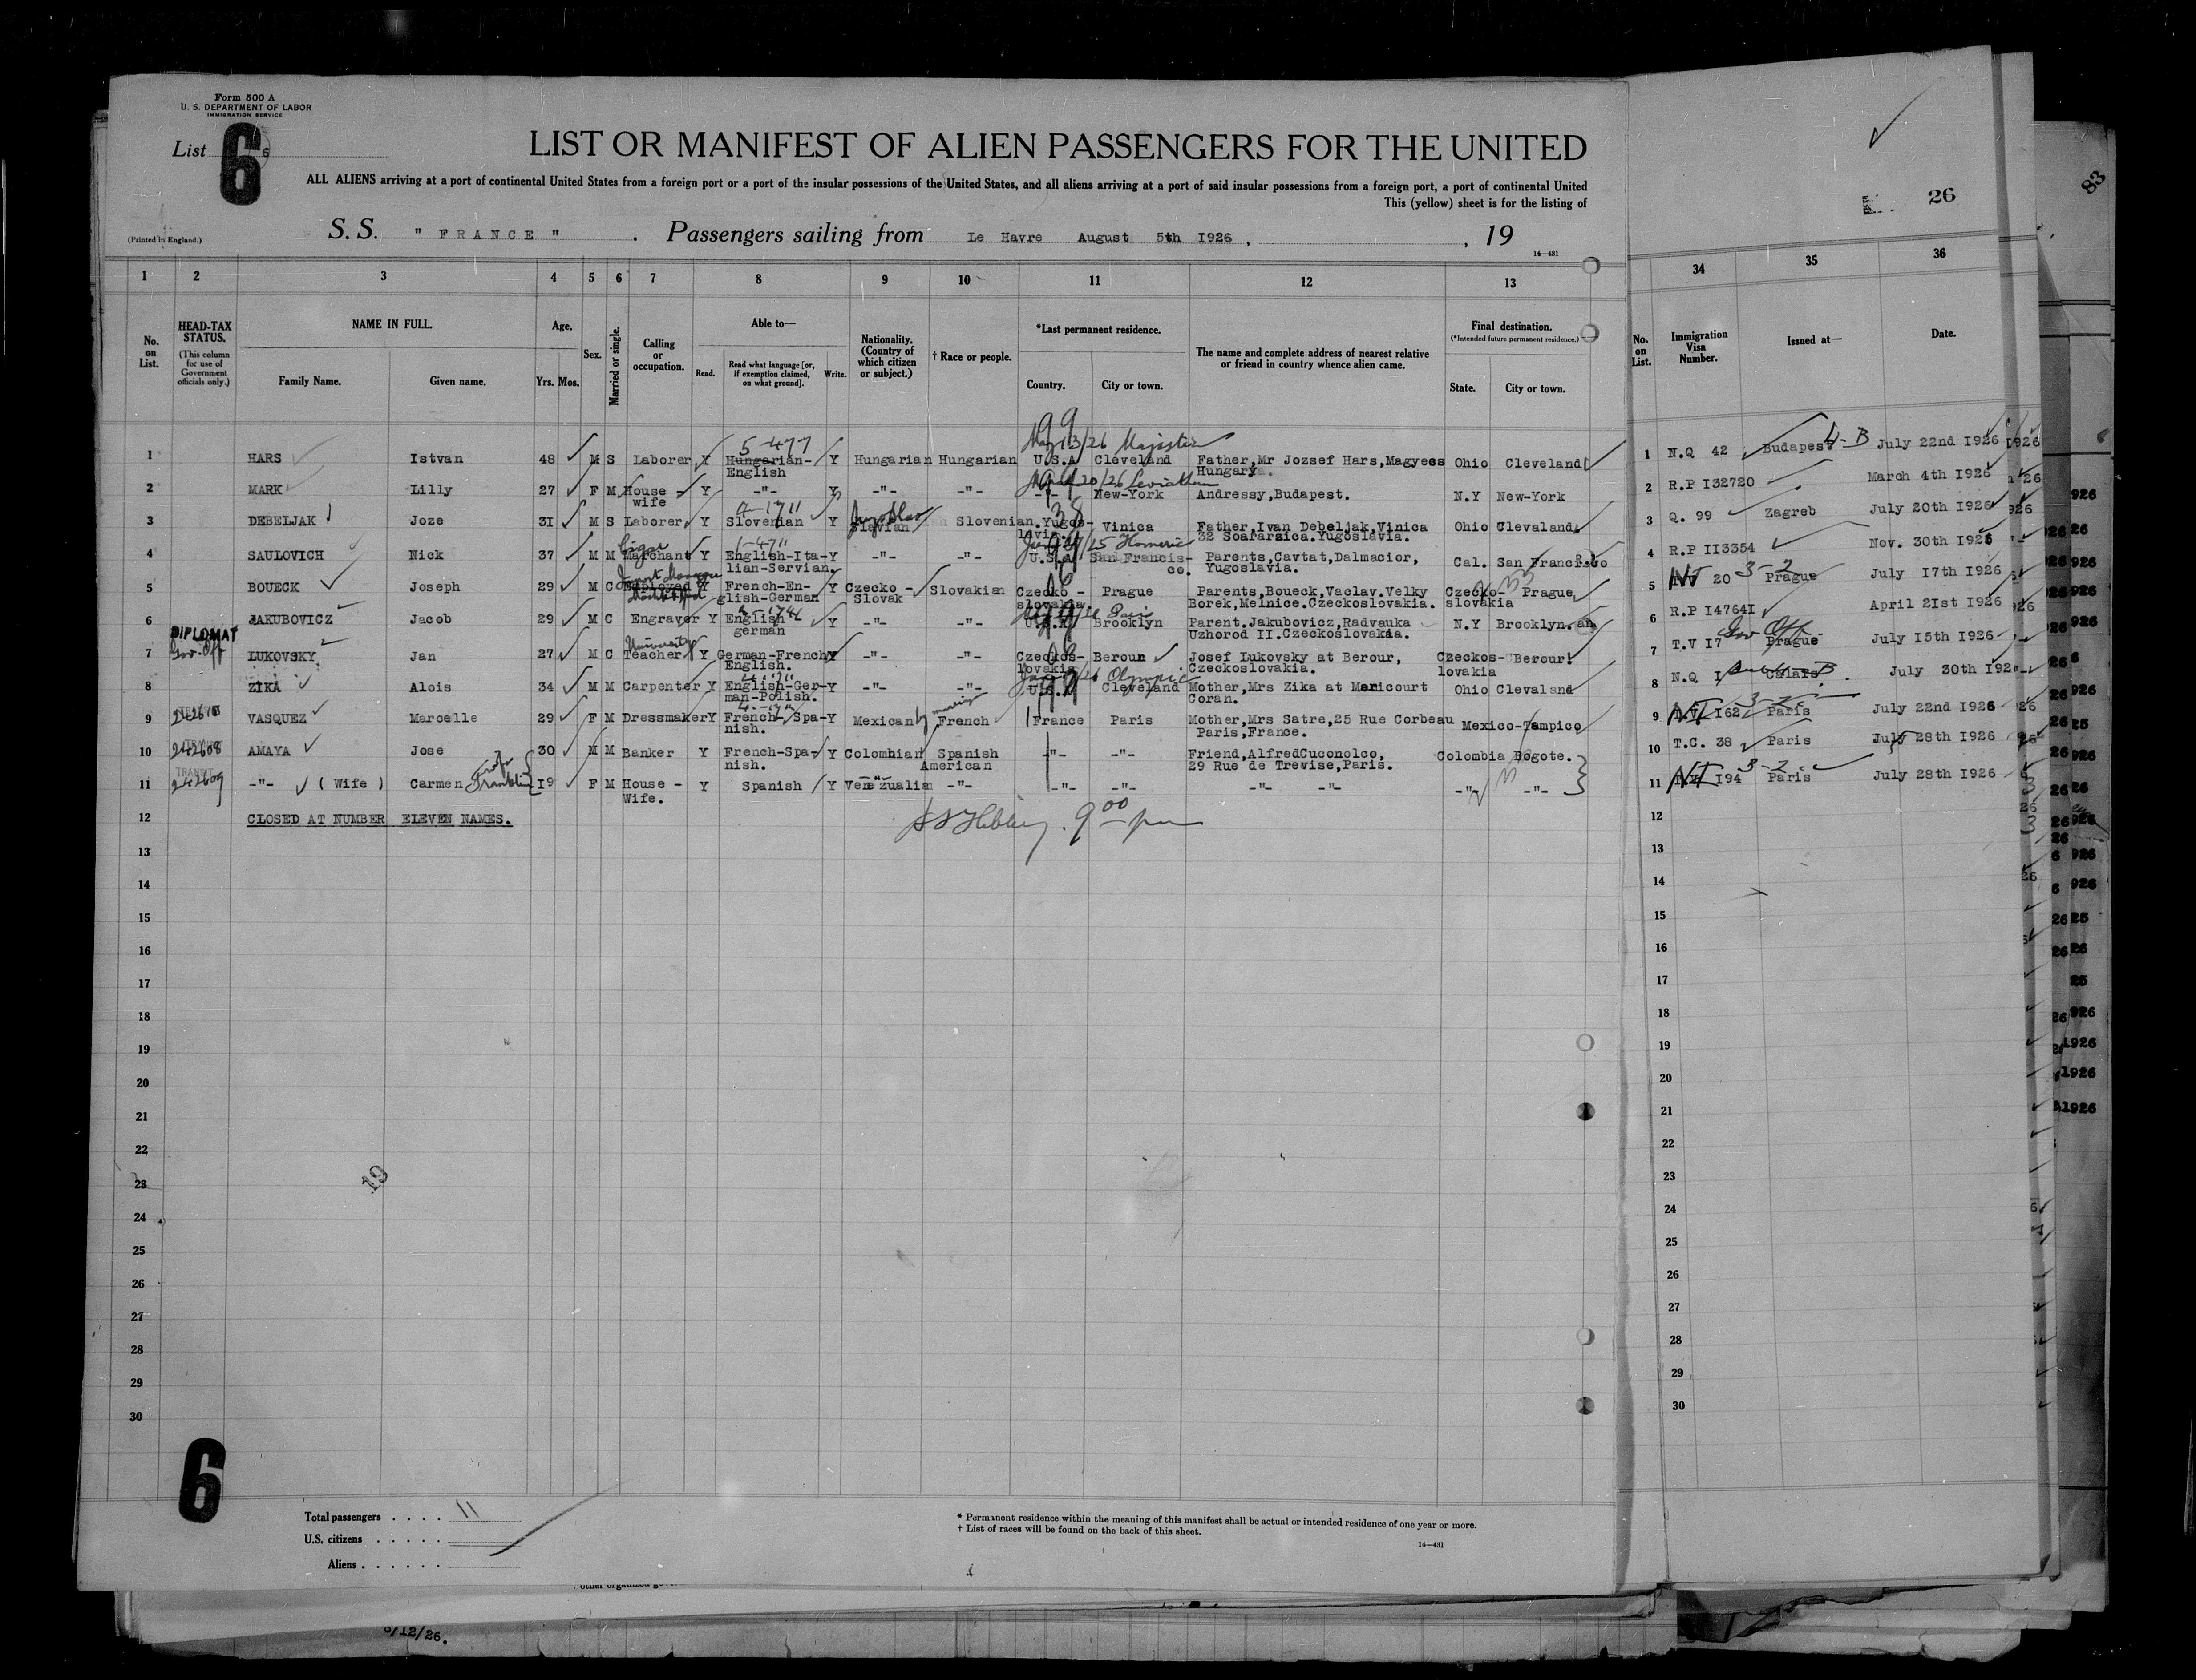 Form 500 A
U. S. DEPARTMENT OF LABOR
IMMIGRATION SERVICE
List 6 6
LIST OR MANIFEST OF ALIEN PASSENGERS FOR THE UNITED
ALL ALIENS arriving at a port of continental United States from a foreign port or a port of the insular possessions of the United States, and all aliens arriving at a port of said insular possessions from a foreign port, a port of continental United
This (yellow) sheet is for the listing of
26
83
(Printed in England.)
S. S. " FRANCE " . Passengers sailing from Le Havre August 5th 1926 , , 19
14—431
1 2 3 4 5 6 7 8 9 10 11 12 13 34 35 36
No. on List.
HEAD-TAX STATUS.
(This column for use of Government officials only.)
NAME IN FULL.
Family Name. Given name.
Age.
Yrs. Mos.
Sex.
Married or single.
Calling or occupation.
Able to—
Read. Read what language [or, if exemption claimed, on what ground]. Write.
Nationality. (Country of which citizen or subject.)
† Race or people.
*Last permanent residence.
Country. City or town.
The name and complete address of nearest relative or friend in country whence alien came.
Final destination.
(*Intended future permanent residence.)
State. City or town.
No. on List.
Immigration Visa Number.
Issued at—
Date.
5-477 99 May 13/26 Majestic
1 HARS Istvan 48 M S Laborer Y Hungarian-English Y Hungarian Hungarian U.S.A Cleveland Father,Mr Jozsef Hars,Magyecs Hungary. Ohio Cleveland 1 N.Q 42 Budapest July 22nd 1926
20/26 Leviathan
2 MARK Lilly 27 F M House wife Y -"- Y -"- -"- -"- New-York Andressy,Budapest. N.Y New-York 2 R.P 132720 March 4th 1926
3 DEBELJAK Joze 31 M S Laborer Y Slovenian Y Jugoslav Slovenian. Yugos-lavia Vinica Father,Ivan Debeljak,Vinica 32 Scafarzica.Yugoslavia. Ohio Clevaland 3 Q. 99 Zagreb July 20th 1926
Cigar 25 Homeric
4 SAULOVICH Nick 37 M M Marchant Y English-Ita-lian-Servian. Y -"- -"- U.S.A San Francis-co. Parents,Cavtat,Dalmacior, Yugoslavia. Cal. San Francisco 4 R.P 113354 Nov. 30th 1925
5 BOUECK Joseph 29 M C Employed Y French-En-glish-German Y Czecko-Slovak Slovakian Czecko-slovakia Prague Parents,Boueck,Vaclav.Velky Borek,Melnice.Czeckoslovakia. Czecko-slovakia Prague 5 NT 20 3-2 Prague July 17th 1926
6 JAKUBOVICZ Jacob 29 M C Engraver Y English german Y -"- -"- U.S.A Brooklyn Parent.Jakubovicz,Radvauka Uzhorod II.Czeckoslovakia. N.Y Brooklyn. 6 R.P 147641 April 21st 1926
DIPLOMAT Gov. Off University Gov Off
7 LUKOVSKY Jan 27 M C Teacher Y German-French English. Y -"- -"- Czeckos-lovakia Beroun Josef Lukovsky at Berour, Czeckoslovakia. Czeckos-lovakia Berour 7 T.V 17 Prague July 15th 1926
Olympic
8 ZIKA Alois 34 M M Carpenter Y English-Ger-man-Polish. Y -"- -"- U.S.A Cleveland Mother,Mrs Zika at Mericourt Coran. Ohio Clevaland 8 N.Q 1 Calais July 30th 1926
by marriage
9 VASQUEZ Marcelle 29 F M Dressmaker Y French-Spa-nish. Y Mexican French France Paris Mother,Mrs Satre,25 Rue Corbeau Paris,France. Mexico-Tampico 9 NT 162 3-2 Paris July 22nd 1926
10 242608 AMAYA Jose 30 M M Banker Y French-Spa-nish. Y Colombian Spanish American -"- -"- Friend,AlfredCuconolco, 29 Rue de Trevise,Paris. Colombia Bogote. 10 T.C. 38 Paris July 28th 1926
11 TRANSIT 242609 -"- ( Wife ) Carmen 19 F M House - Wife. Y Spanish Y Venezualia -"- -"- -"- -"- -"- -"- -"- 11 NT 194 3-2 Paris July 28th 1926
12 CLOSED AT NUMBER ELEVEN NAMES. 9 00 pm 12
13 13
14 14
15 15
16 16
17 17
18 18
19 19
20 20
21 21
22 22
23 23
24 24
25 25
26 26
27 27
28 28
29 29
30 30
19
6
Total passengers . . . . 11
U.S. citizens . . . . .
Aliens . . . . . .
* Permanent residence within the meaning of this manifest shall be actual or intended residence of one year or more.
† List of races will be found on the back of this sheet.
14—431
8/12/26.